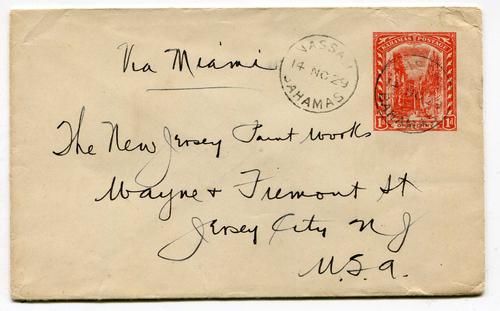 Via Miami
NASSAU
14 NO 29
BAHAMAS
BAHAMAS POSTAGE
1d 1d
The New Jersey Paint Works
Wayne + Fremont St
Jersey City N J
U.S.A.